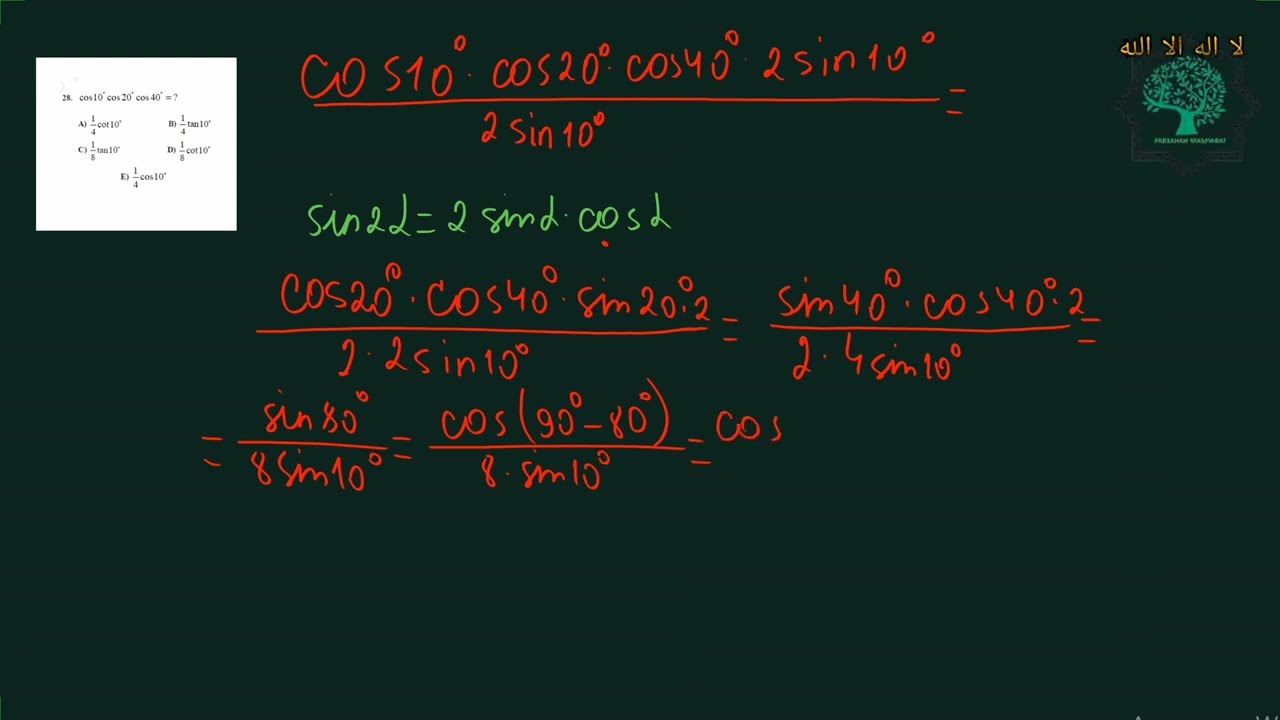 28. cos10° cos20° cos40° = ?
A) 1/4 cot10° B) 1/4 tan10°
C) 1/8 tan10° D) 1/8 cot10°
E) 1/4 cos10°
cos10° · cos20° · cos40° · 2sin10° / 2sin10° =
sin2α = 2sinα · cosα
cos20° · cos40° · sin20° · 2 / 2 · 2sin10° = sin40° · cos40° · 2 / 2 · 4sin10° =
= sin80° / 8sin10° = cos(90° - 80°) / 8 · sin10° = cos
لا اله الا الله
РАВЗАНАИ МАЪРИФАТ